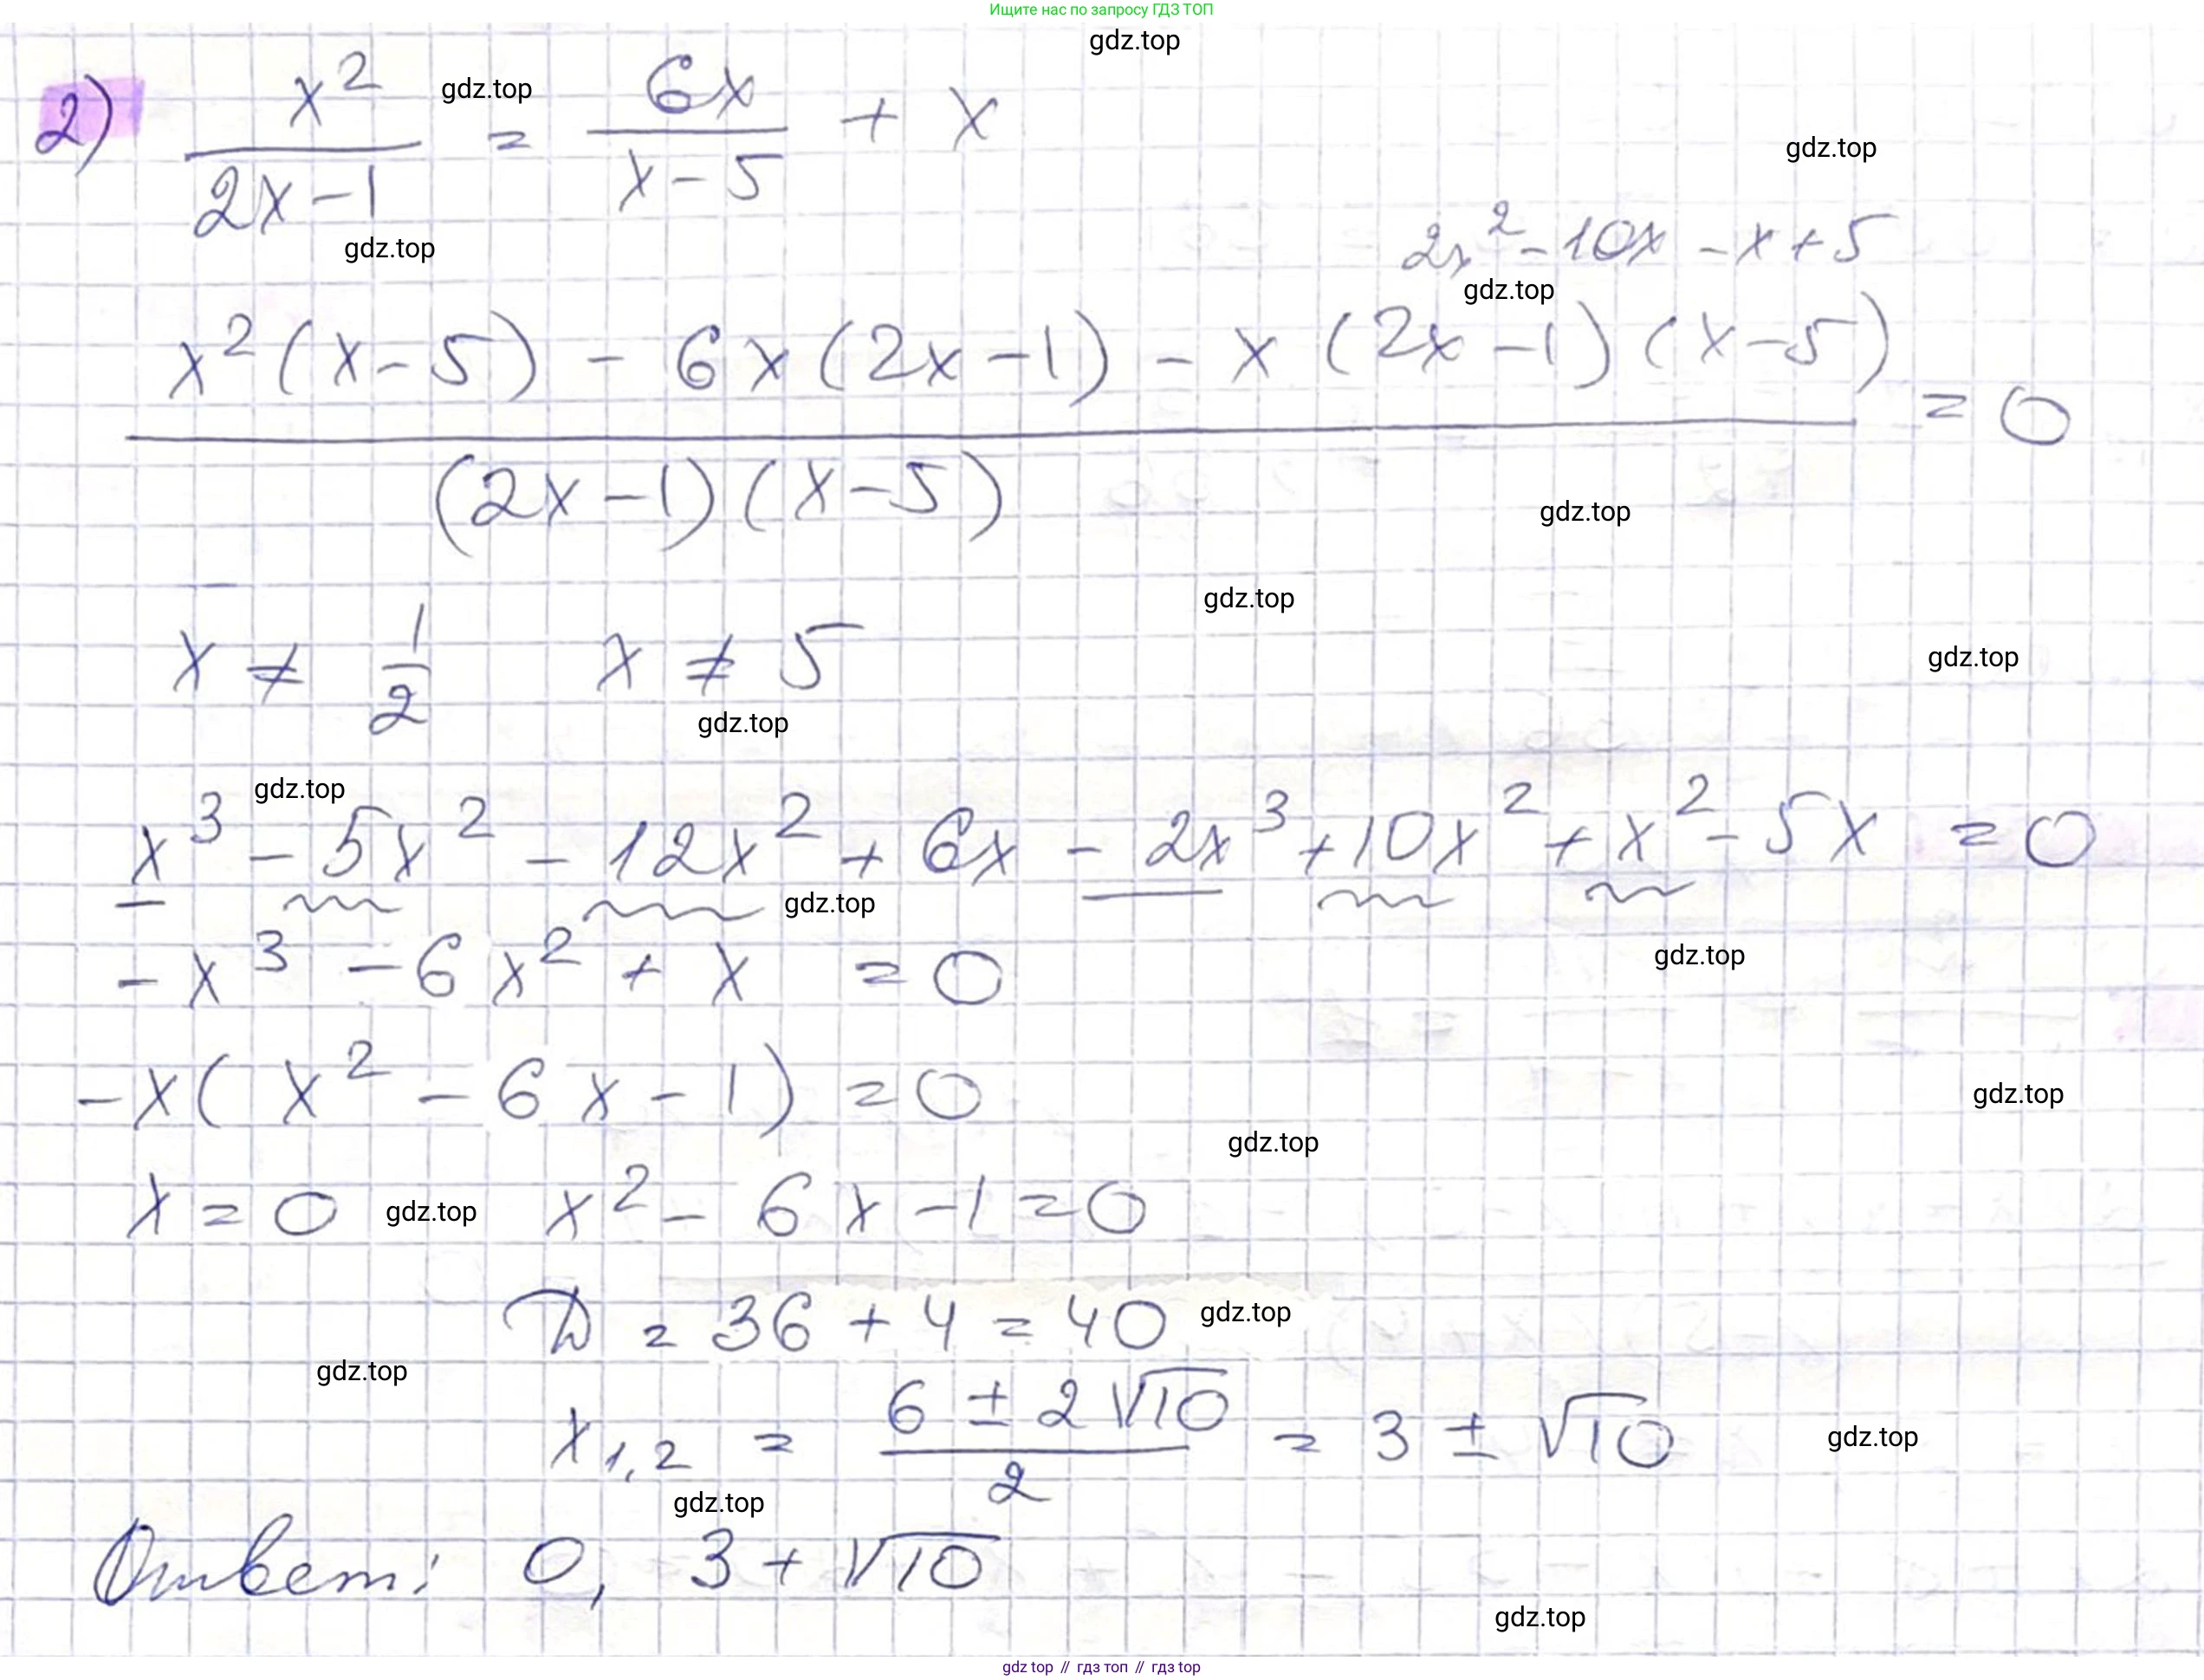 Ищите нас по запросу ГДЗ ТОП
gdz.top
2) x²/(2x-1) = 6x/(x-5) + x
gdz.top
gdz.top
gdz.top
2x² - 10x - x + 5
gdz.top
(x²(x-5) - 6x(2x-1) - x(2x-1)(x-5))/((2x-1)(x-5)) = 0
gdz.top
gdz.top
x ≠ 1/2 x ≠ 5
gdz.top
gdz.top
gdz.top
x³ - 5x² - 12x² + 6x - 2x³ + 10x² + x² - 5x = 0
gdz.top
-x³ - 6x² + x = 0
gdz.top
-x(x² - 6x - 1) = 0
gdz.top
gdz.top
x = 0 gdz.top x² - 6x - 1 = 0
D = 36 + 4 = 40
gdz.top
gdz.top
x₁,₂ = (6 ± 2√10)/2 = 3 ± √10
gdz.top
gdz.top
Ответ: 0, 3 + √10
gdz.top
gdz top // гдз топ // гдз top